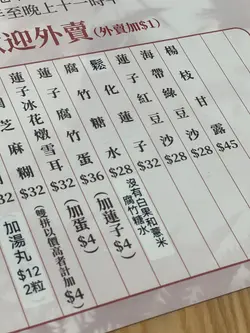 至晚上十一時
迎外賣(外賣加$1)
楊枝甘露
$45
海帶綠豆沙
$28
蓮子紅豆沙
$28
糖水
$28
沒有白果和薏米
腐竹糖水
腐竹蛋
$36
(加蓮子$4)
(加蛋$4)
蓮子冰花燉雪耳
$32
(雙拼以價高者計加$4)
芝麻糊
$32
加湯丸
$12
2粒